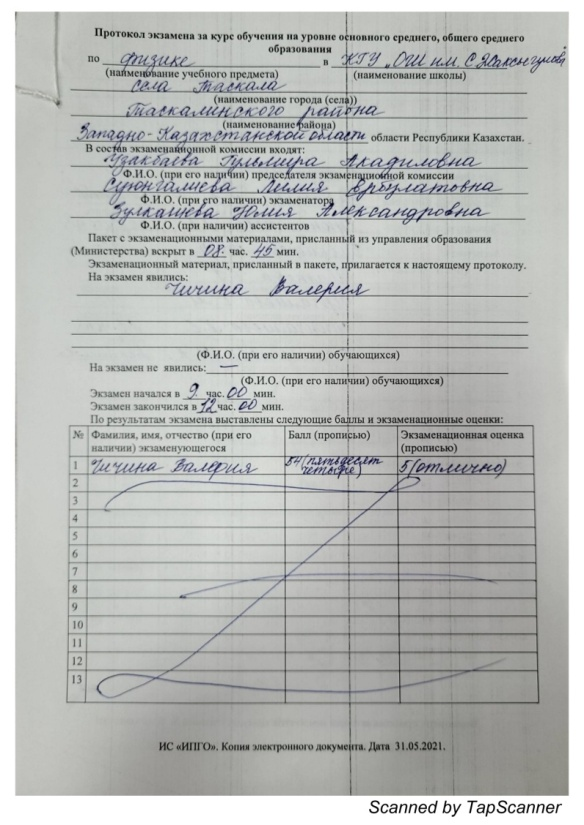 Протокол экзамена за курс обучения на уровне основного среднего, общего среднего
образования
по физике в КГУ „ОШ им. С. Жаксыгулова
(наименование учебного предмета) (наименование школы)
села Таскала
(наименование города (села))
Таскалинского района
(наименование района)
Западно-Казахстанской области области Республики Казахстан.
В состав экзаменационной комиссии входят:
Узакбаева Гульмира Акадиловна
Ф.И.О. (при его наличии) председателя экзаменационной комиссии
Суюнгалиева Лилия
Ф.И.О. (при его наличии) экзаменатора
Зулкашева Юлия Александровна
Ф.И.О. (при наличии) ассистентов
Пакет с экзаменационными материалами, присланный из управления образования
(Министерства) вскрыт в 08. час. 45 мин.
Экзаменационный материал, присланный в пакете, прилагается к настоящему протоколу.
На экзамен явились:
Чичина Валерия
(Ф.И.О. (при его наличии) обучающихся)
На экзамен не явились: —
(Ф.И.О. (при его наличии) обучающихся)
Экзамен начался в 9. час. 00 мин.
Экзамен закончился в 12 час. 00 мин.
По результатам экзамена выставлены следующие баллы и экзаменационные оценки:
№ Фамилия, имя, отчество (при его наличии) экзаменующегося Балл (прописью) Экзаменационная оценка (прописью)
1 Чичина Валерия 54 (пятьдесят четыре) 5 (отлично)
2
3
4
5
6
7
8
9
10
11
12
13
ИС «ИПГО». Копия электронного документа. Дата 31.05.2021.
Scanned by TapScanner